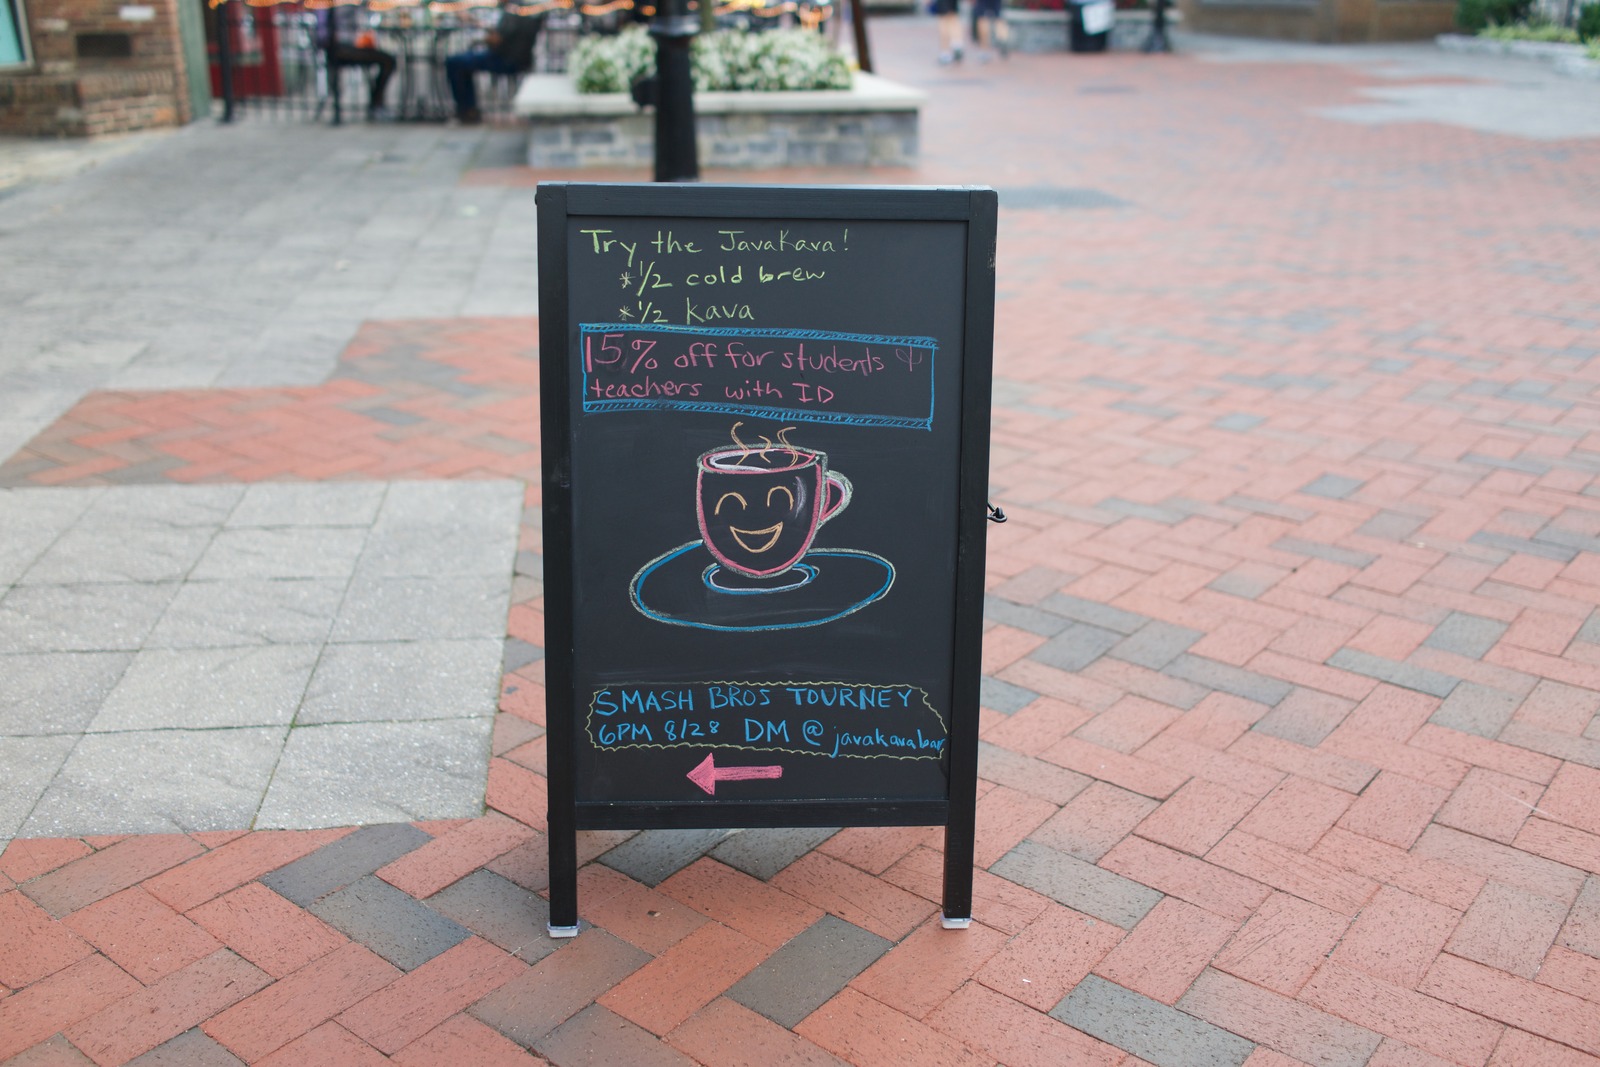 Try the JavaKava!
*1/2 cold brew
*1/2 kava
15% off for students &
teachers with ID
SMASH BROS TOURNEY
6PM 8/28 DM @ javakavabar